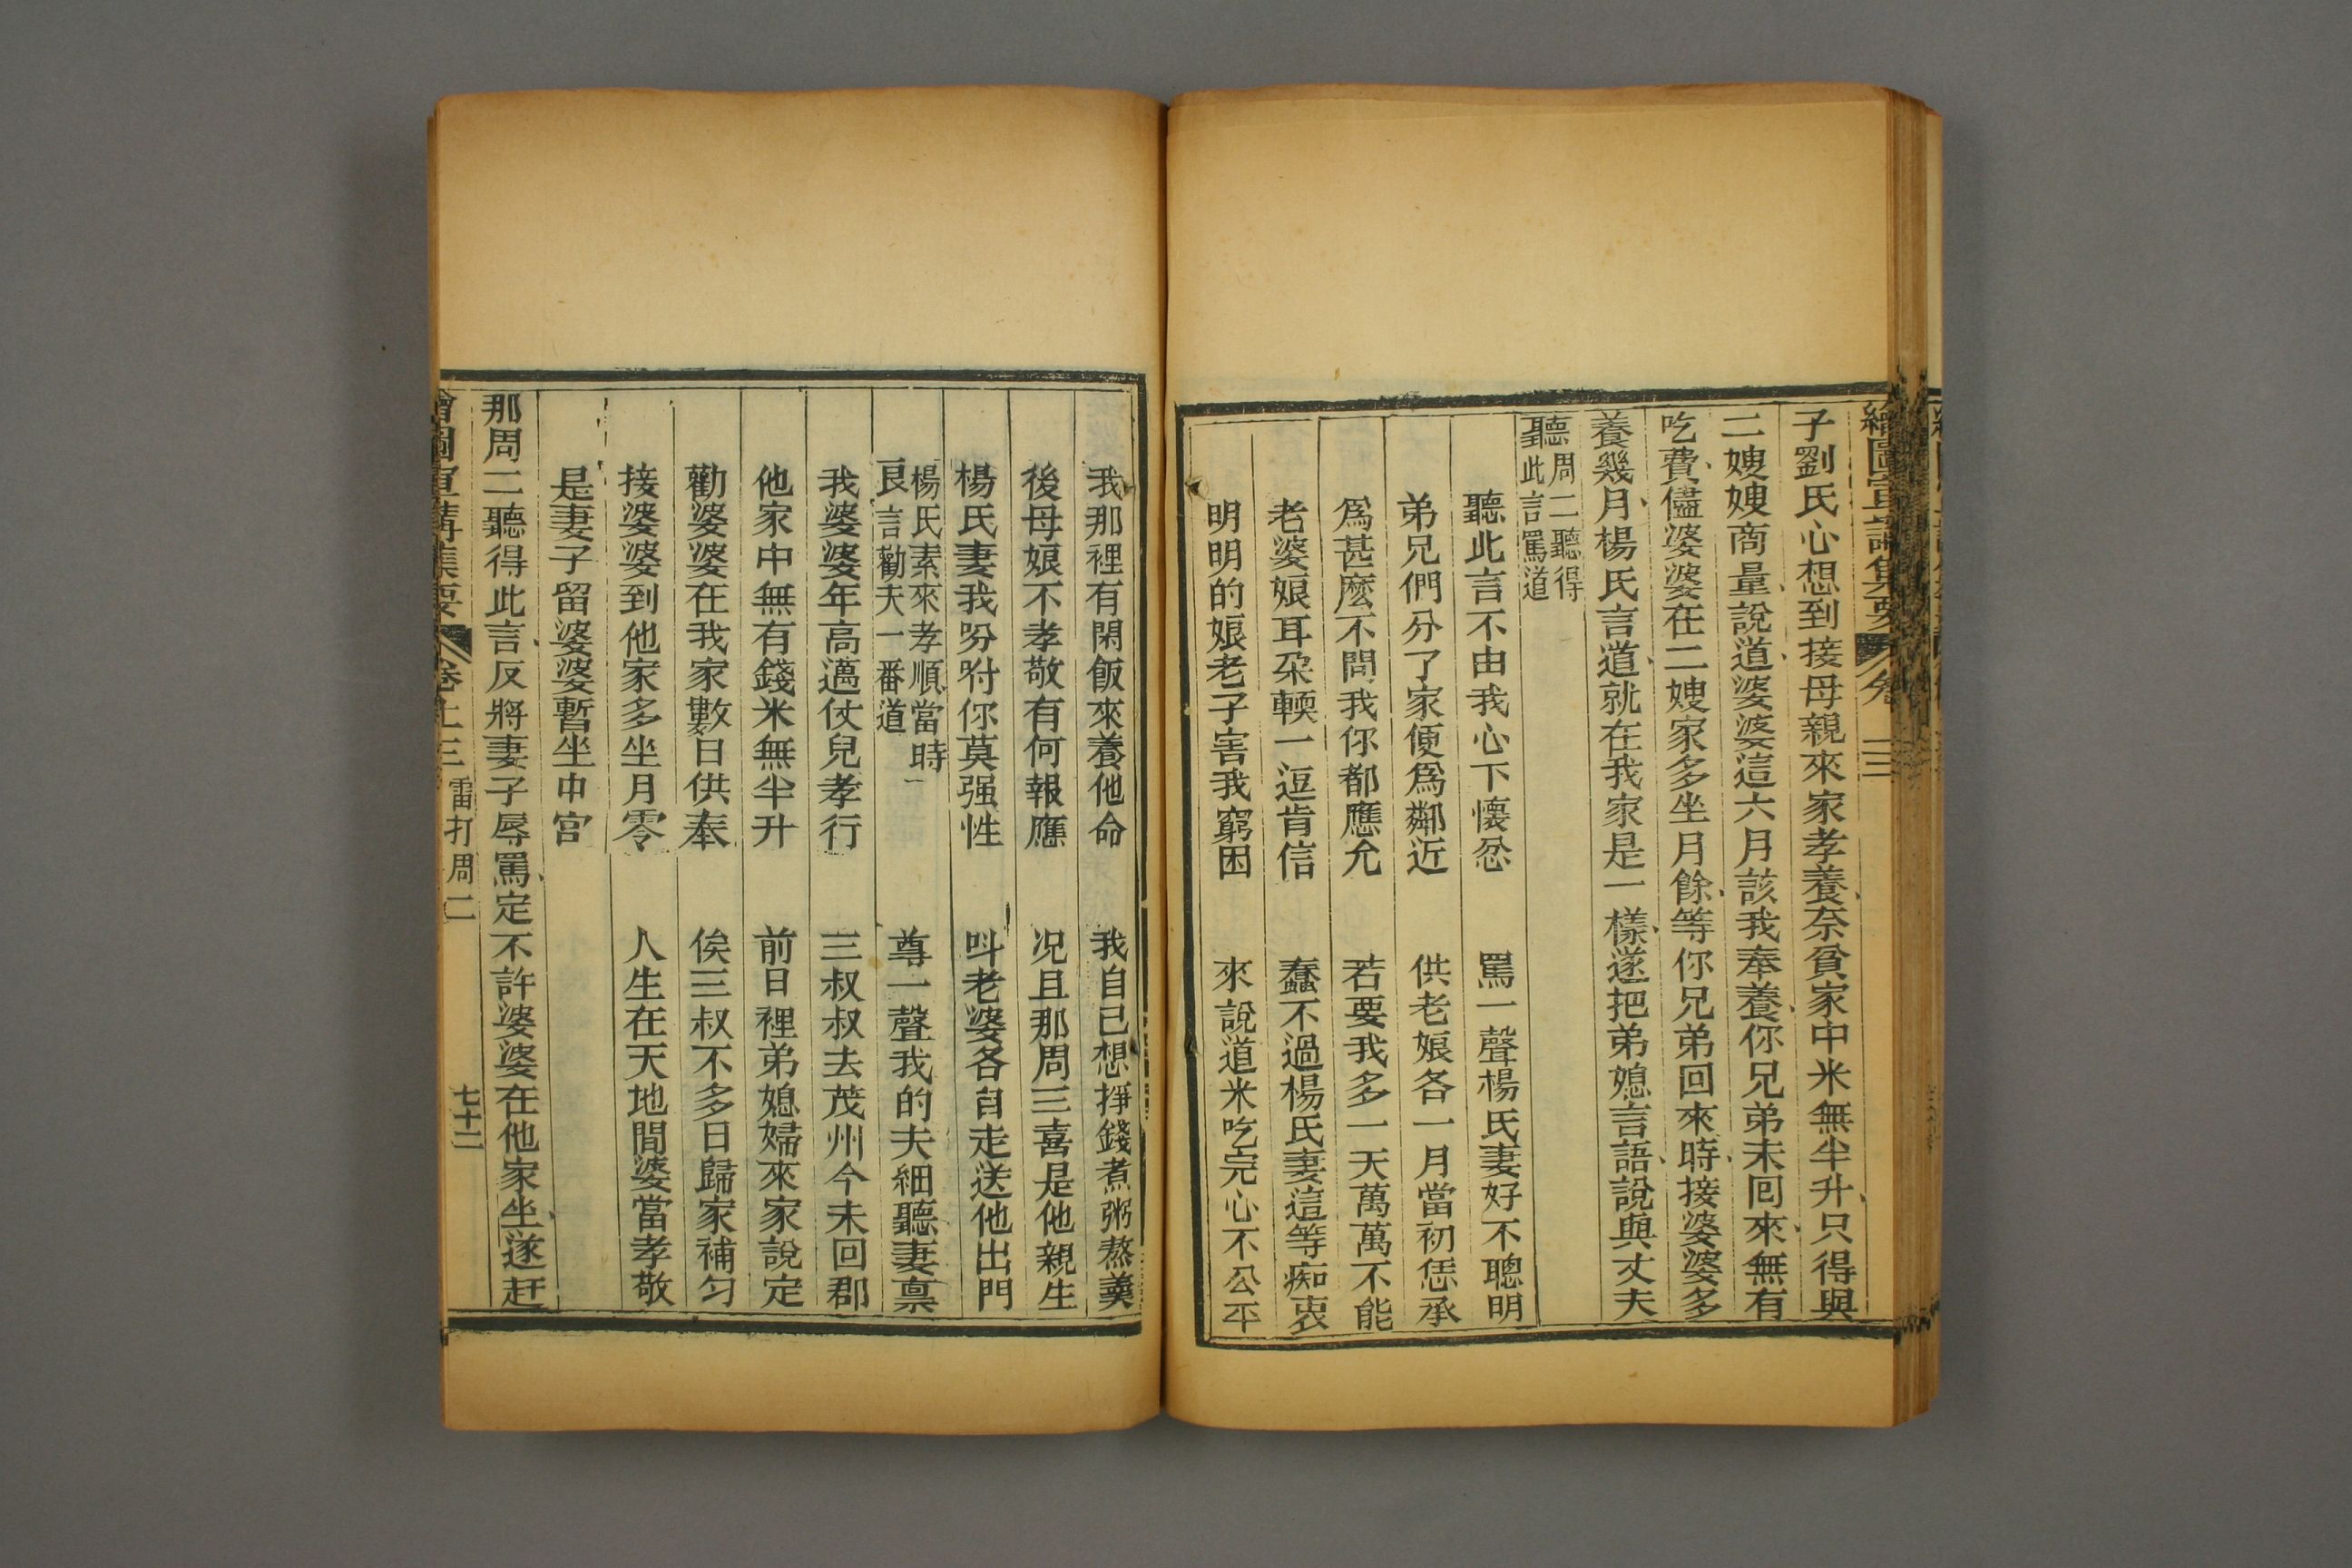 繪圖宣講集要 卷三
子劉氏心想到接母親來家孝養、奈貧家中米無半升、只得與
二嫂嫂商量、說道、婆婆這六月該我奉養、你兄弟未囘來、無有
吃費、儘婆婆在二嫂家多坐月餘、等你兄弟回來、時、接婆婆多
養幾月、楊氏言道、就在我家是一樣、遂把弟媳言語、說與丈夫
聽周二聽得
此言罵道
聽此言不由我心下懷忿 罵一聲楊氏妻好不聰明
弟兄們分了家便爲鄰近 供老娘各一月當初恁承
爲甚麽不問我你都應允 若要我多一天萬萬不能
老婆娘耳朶輭一逗肯信 蠢不過楊氏妻這等痴衷
明明的娘老子害我窮困 來說道米吃完心不公平
我那裡有閑飯來養他命 我自己想掙錢煮粥熬羹
後母娘不孝敬有何報應 况且那周三喜是他親生
楊氏妻我吩咐你莫强性 呌老婆各自走送他出門
楊氏素來孝順當時
良言勸夫一番道 尊一聲我的夫細聽妻禀
我婆婆年高邁仗兒孝行 三叔叔去茂州今未回郡
他家中無有錢米無半升 前日裡弟媳婦來家說定
勸婆婆在我家數日供奉 俟三叔不多日歸家補勻
接婆婆到他家多坐月零 人生在天地間婆當孝敬
是妻子留婆婆暫坐中宫
那周二聽得此言、反將妻子辱罵、定不許婆婆在他家坐、遂赶
繪圖宣講集要 卷上三 雷打周二 七十二